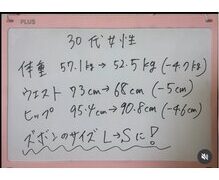 PLUS
30代女性
体重 57.1kg→52.5kg(-4.7kg)
ウエスト 73cm→68cm(-5cm)
ヒップ 95.4cm→90.8cm(-4.6cm)
ズボンのサイズL→Sに!